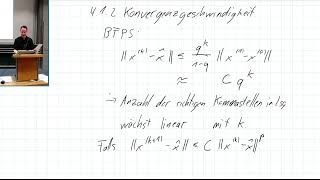 4.1.2 Konvergenzgeschwindigkeit
BFPS:
||x^(k) - x̂|| ≤ q^k/(1-q) ||x^(1) - x^(0)||
≈ C q^k
→ Anzahl der richtigen Kommastellen in
wächst linear mit k.
Falls ||x^(k+1) - x̂|| ≤ C ||x^(k) - x̂||^p